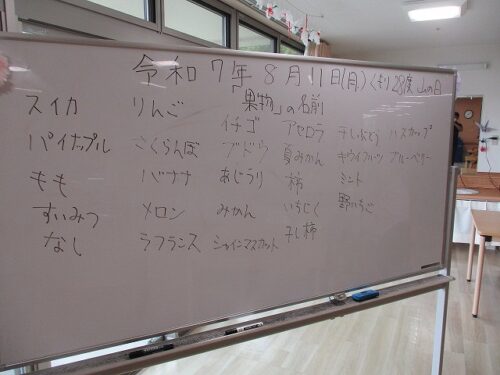 令和7年8月11日(月)くもり28度 山の日
「果物」の名前
スイカ りんご イチゴ アセロラ 干しぶどう ハスカップ
パイナップル さくらんぼ ブドウ 夏みかん キウイフルーツ ブルーベリー
もも バナナ あじうり 柿 ミント
すいみつ メロン みかん いちじく 野いちご
なし ラフランス シャインマスカット 干し柿